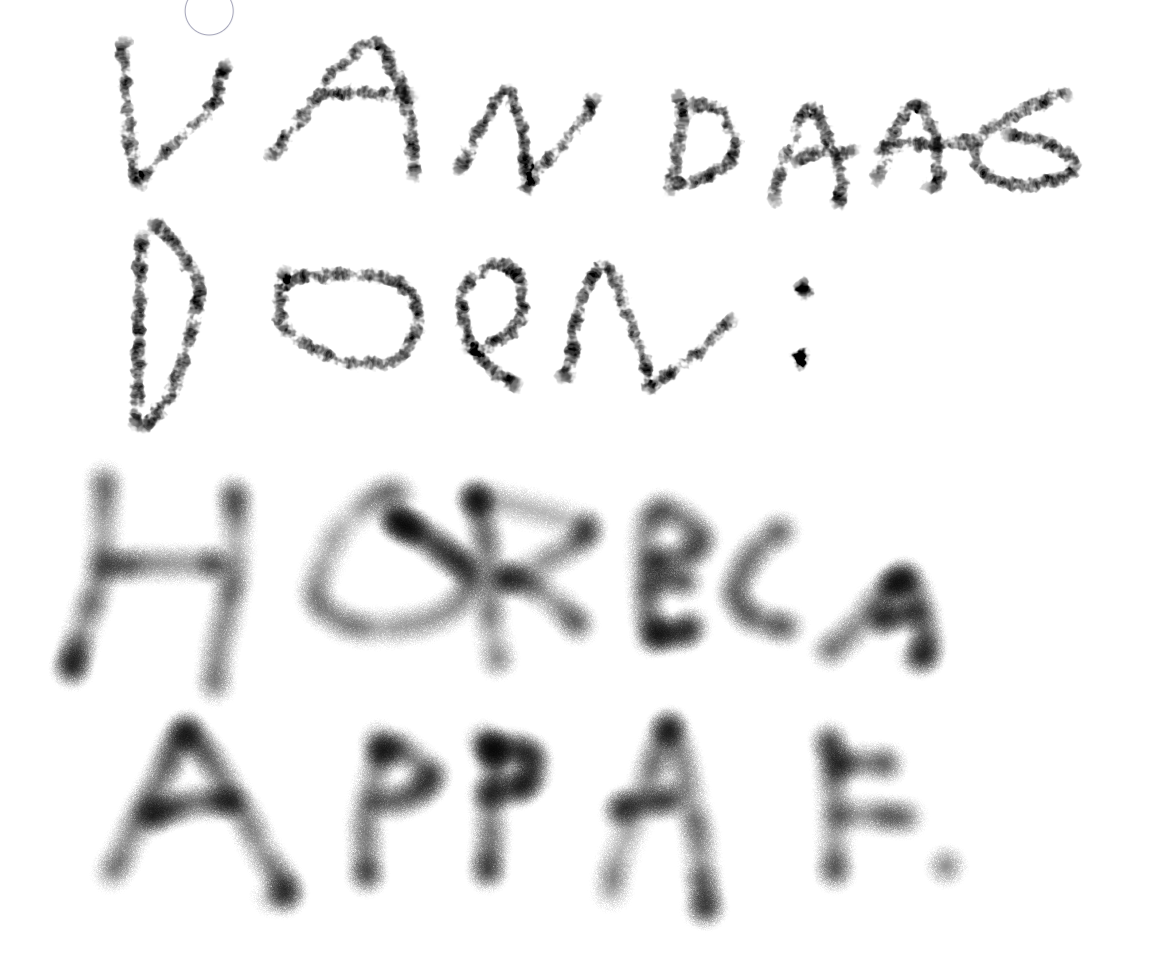 VANDAAG
DOeN:
HORECA
APPAF.